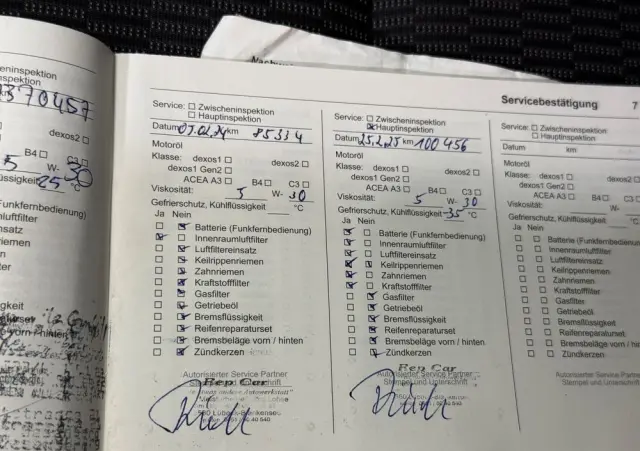 Servicebestätigung 7
cheninspektion
nspektion
370457
dexos2 ☐
B4 ☐ C3 ☐
5 W- 30
lüssigkeit 25 °C
nbedienung)
mfilter
einsatz
nriemen
filter
gkeit
Service: ☐ Zwischeninspektion
☐ Hauptinspektion
Datum 05.02.24 km 85334
Motoröl
Klasse: dexos1 ☐ dexos2 ☐
dexos1 Gen2 ☐
ACEA A3 ☐ B4 ☐ C3 ☐
Viskosität: 5 W- 30
Gefrierschutz, Kühlflüssigkeit °C
Ja Nein
Batterie (Funkfernbedienung)
Innenraumluftfilter
Luftfiltereinsatz
Keilrippenriemen
Zahnriemen
Kraftstofffilter
Gasfilter
Getriebeöl
Bremsflüssigkeit
Reifenreparaturset
Bremsbeläge vorn / hinten
Zündkerzen
Autorisierter Service Partner
Stempel und Unterschrift
Rep Car
Service: ☐ Zwischeninspektion
☒ Hauptinspektion
Datum 25.2.25 km 100456
Motoröl
Klasse: dexos1 ☐ dexos2 ☐
dexos1 Gen2 ☐
ACEA A3 ☐ B4 ☐ C3 ☐
Viskosität: 5 W- 30
Gefrierschutz, Kühlflüssigkeit -35 °C
Ja Nein
Batterie (Funkfernbedienung)
Innenraumluftfilter
Luftfiltereinsatz
Keilrippenriemen
Zahnriemen
Kraftstofffilter
Gasfilter
Getriebeöl
Bremsflüssigkeit
Reifenreparaturset
Bremsbeläge vorn / hinten
Zündkerzen
Autorisierter Service Partner
Stempel und Unterschrift
Rep Car
Service: ☐ Zwischeninspektion
☐ Hauptinspektion
Datum km
Motoröl
Klasse: dexos1 ☐ dexos2
dexos1 Gen2 ☐
ACEA A3 ☐ B4 ☐ C3
Viskosität: W-
Gefrierschutz, Kühlflüssigkeit
Ja Nein
Batterie (Funkfernbedienung)
Innenraumluftfilter
Luftfiltereinsatz
Keilrippenriemen
Zahnriemen
Kraftstofffilter
Gasfilter
Getriebeöl
Bremsflüssigkeit
Reifenreparaturset
Bremsbeläge vorn / hinten
Zündkerzen
Autorisierter Service Partner
Stempel und Unterschrift